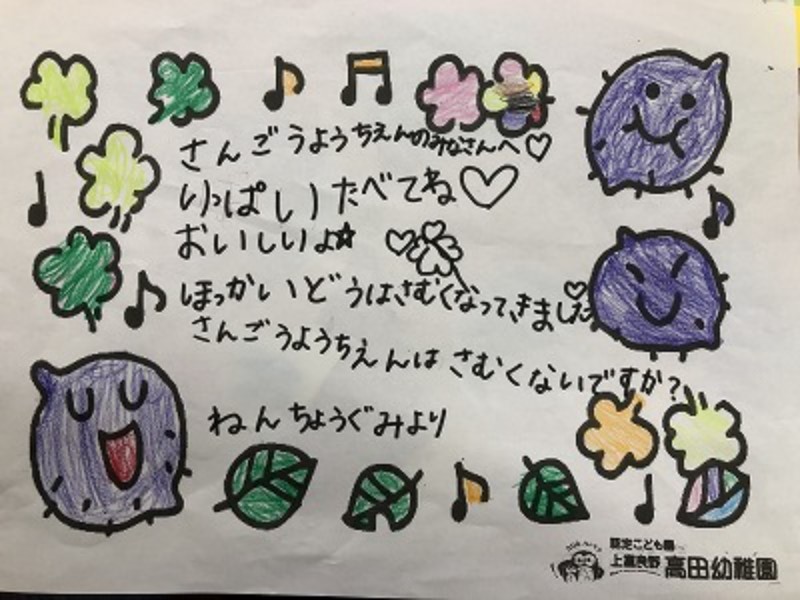 さんごうようちえんのみなさんへ♡
いっぱいたべてね♡
おいしいよ☆
ほっかいどうはさむくなってきました
さんごうようちえんはさむくないですか?
ねんちょうぐみより
認定こども園
上富良野 高田幼稚園